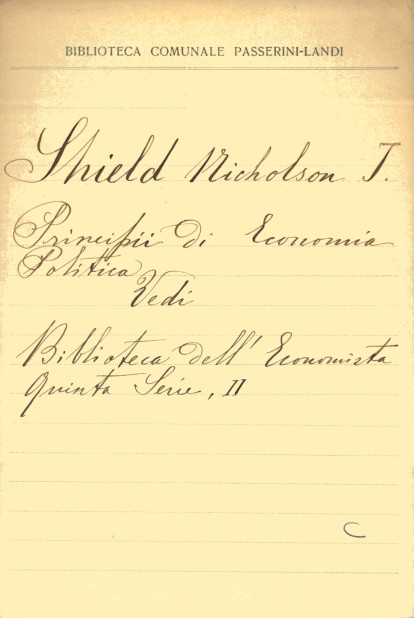 BIBLIOTECA COMUNALE PASSERINI-LANDI
Shield Nicholson J.
Principii di Economia
Politica
Vedi
Biblioteca dell' Economista
Quinta Serie, II
C